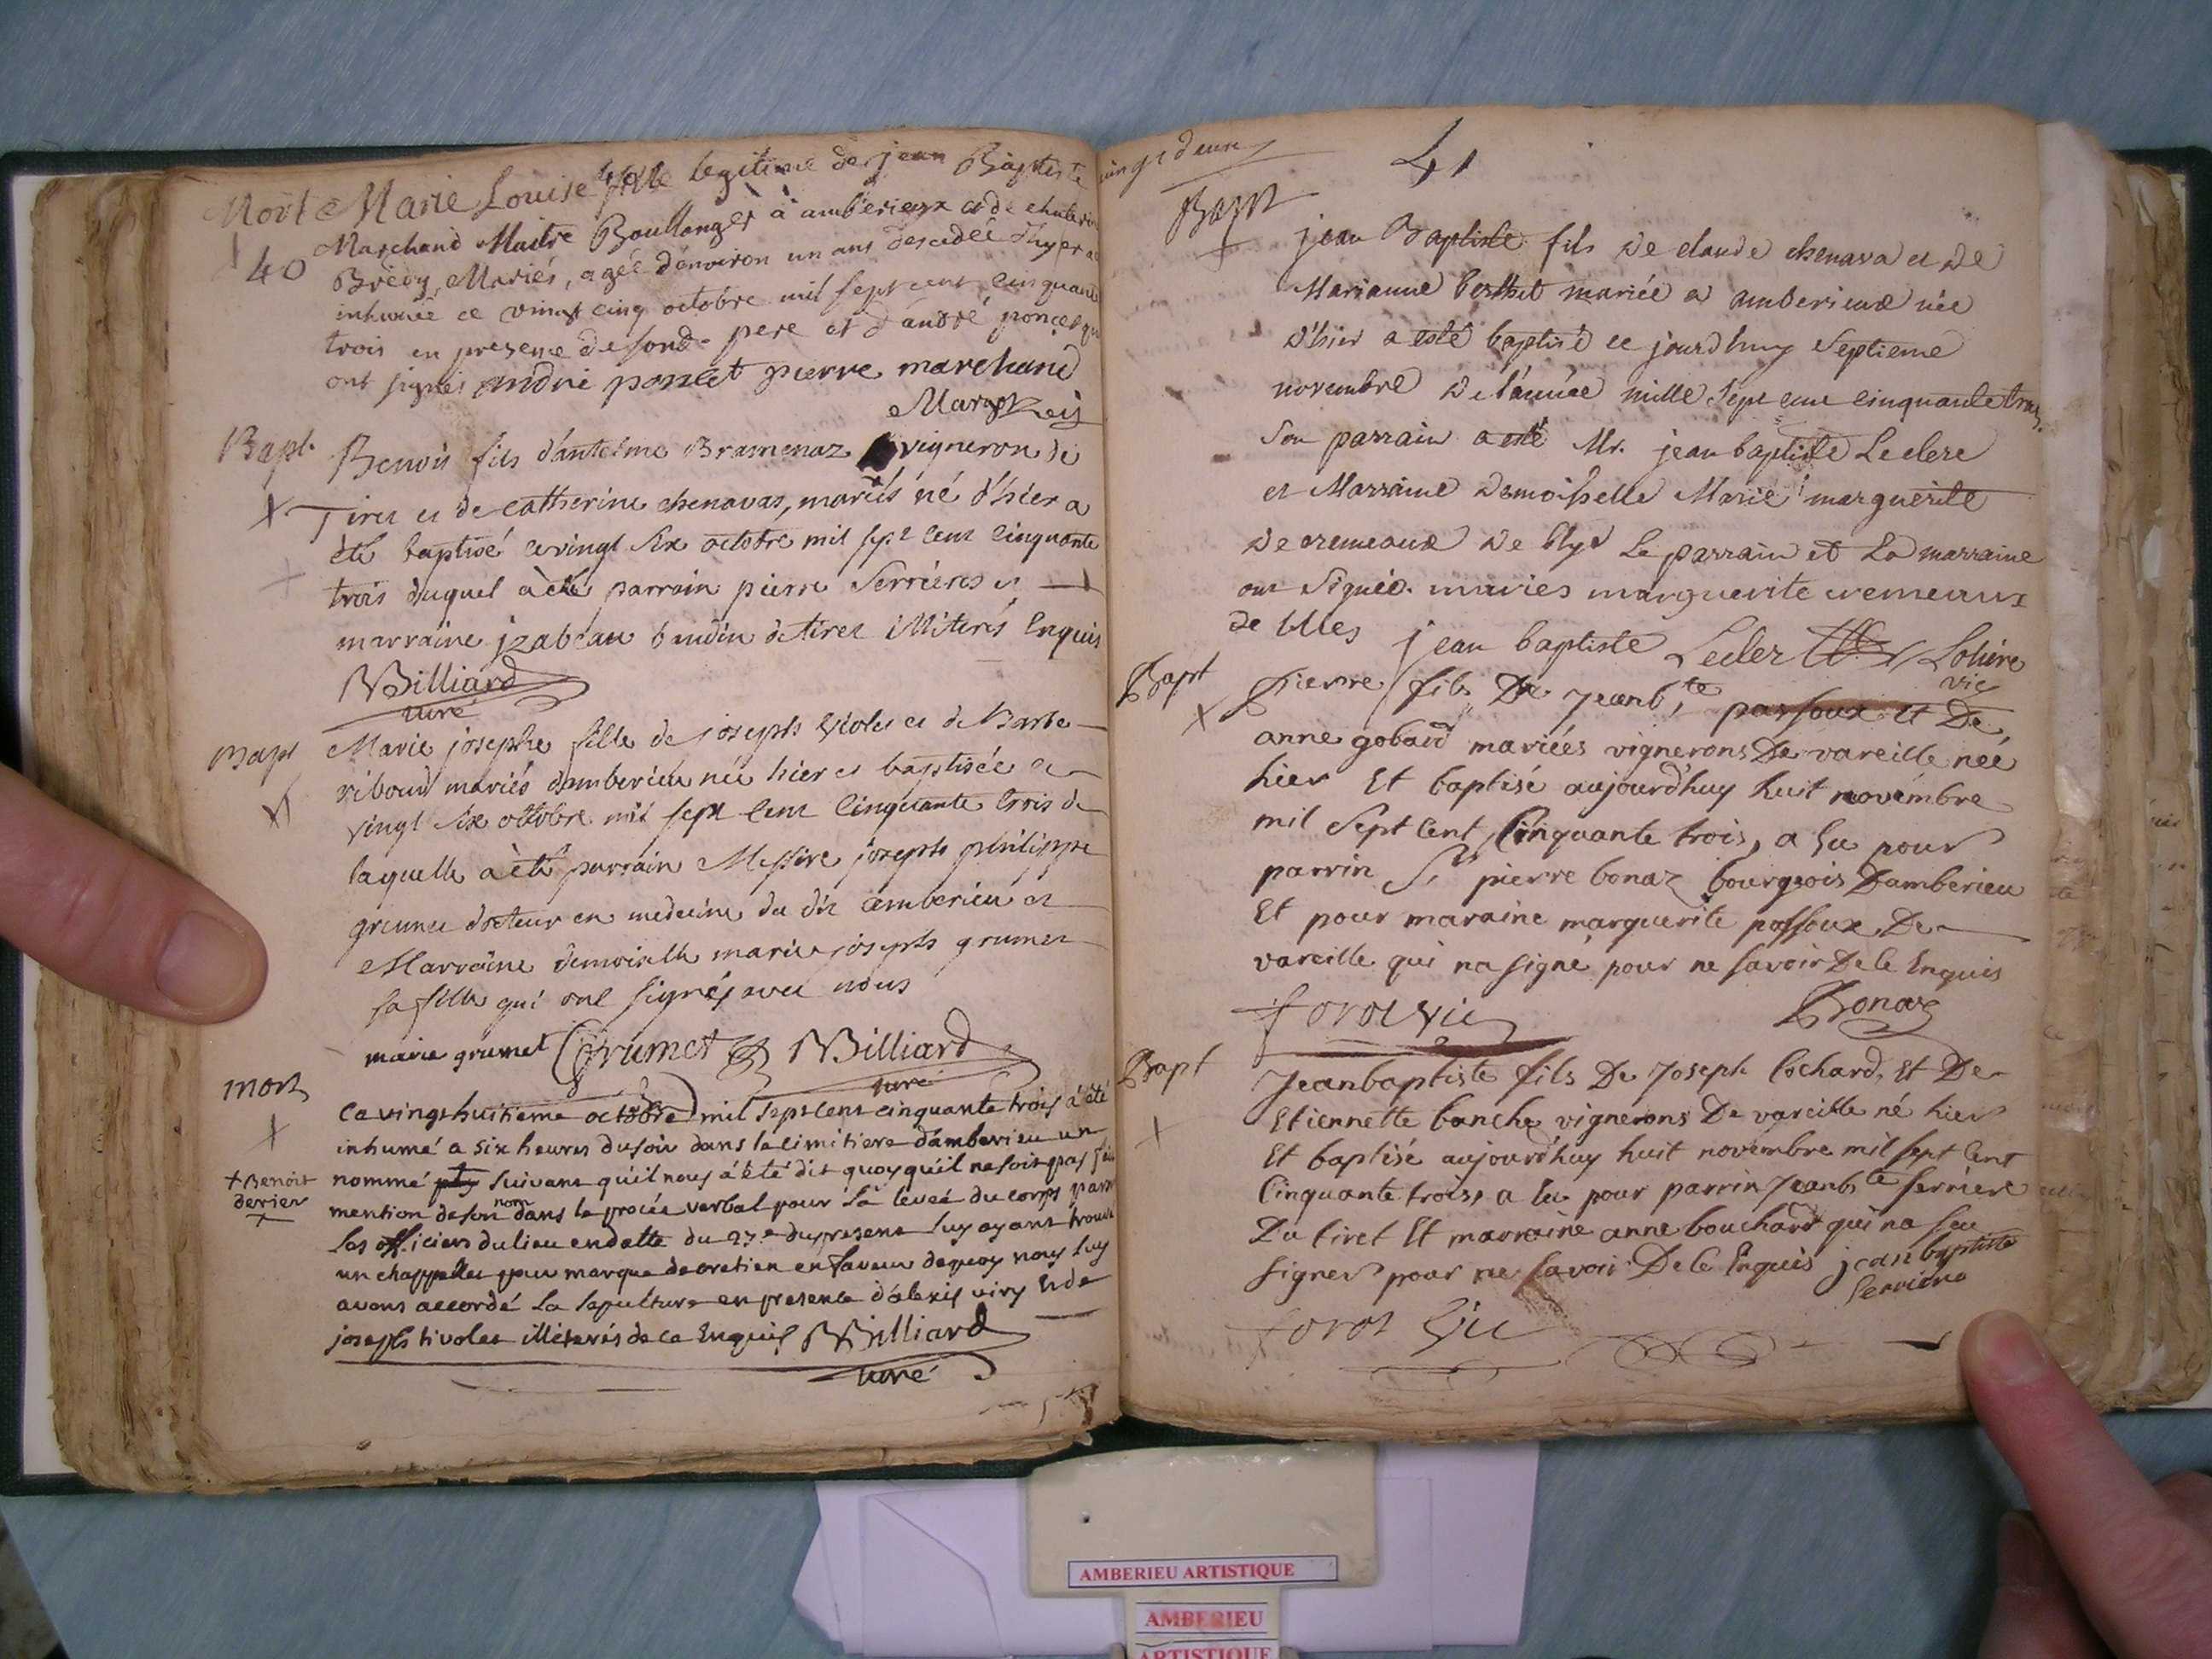 Mort Marie Louise fille legitime de jean Baptiste
40 Marchand Maitre Boullanger à amberieux et de
Brégy, Mariés, agée d'environ un ans descedée d'hyer a
inhumée ce vingt cinq octobre mil sept cent cinquante
trois en presence de son pere et d'andré poncet qui
ont signés andré poncet pierre marchand
Bapt. Benoit fils d'antelme Bramenaz vigneron de
Tiret et de catherine chenavas, mariés né d'hier a
été baptisé ce vingt six octobre mil sept cent cinquante
trois duquel a été parrain pierre Serrieres et
marraine jzabeau baudin de tiret illiterés Enquis
Billiard
curé
Bapt Marie josephe fille de joseph et de Barbe
riboud mariés damberieu née hier et baptisée ce
vingt six octobre mil sept cent cinquante trois de
laquelle a été parrain Messire joseph philippe
grumet docteur en medecine du dit amberieu et
Marraine demoiselle marie joseph grumet
sa fille qui ont signés avec nous
marie grumet Grumet Billiard
curé
mort
Ce vingt huitieme octobre mil sept cent cinquante trois a été
inhumé a six heures du soir dans le cimitiere d'amberieu un
+ Benoit nommé suivant qu'il nous a été dit quoyqu'il ne soit pas fait
derrier mention de son nom dans le procés verbal pour la levée du corps par
les officiers du lieu en datte du 27e du present luy ayant trouvé
un chappellet pour marque de cretien en faveur dequoy nous luy
avons accordé la sepulture en presence d'alexis viry Et de
joseph tivolet illiterés de ce Enquis Billiard
curé
41
Bapt
jean Baptiste fils de claude chenava et de
Marianne berthet mariée a amberieux née
d'hier a esté baptisé ce jourd'huy Septieme
novembre de l'année mille sept cent cinquante trois
Son parrain a esté Mr. jean baptiste Leclerc
et Marraine demoiselle Marie marguerite
de cremeaux de blyes Le parrain et La marraine
ont Signés. maries marguerite cremeaux
de blies jean baptiste Lecler
vic
Bapt Pierre fils De Jean b.te passoux et De
anne gobaud mariées vignerons De vareille née
hier Et baptisé aujourd'huy huit novembre
mil Sept Cent Cinquante trois, a Eu pour
parrin Sr pierre bonaz bourgeois Damberieu
Et pour maraine marguerite passoux De
vareille qui na signé pour ne savoir De Ce Enquis
forot vic Bonaz
Bapt Jeanbaptiste fils De Joseph Cochard, Et De
Etiennette banche vignerons De vareille né hier
Et baptisé aujourd'huy huit novembre mil sept Cent
Cinquante trois, a Eu pour parrin Jeanb.te serriere
Du tiret Et marraine anne bouchard qui na sçu
signer pour ne savoir De Ce Enquis jean baptiste
serriere
forot vic
AMBERIEU ARTISTIQUE
AMBERIEU
ARTISTIQUE